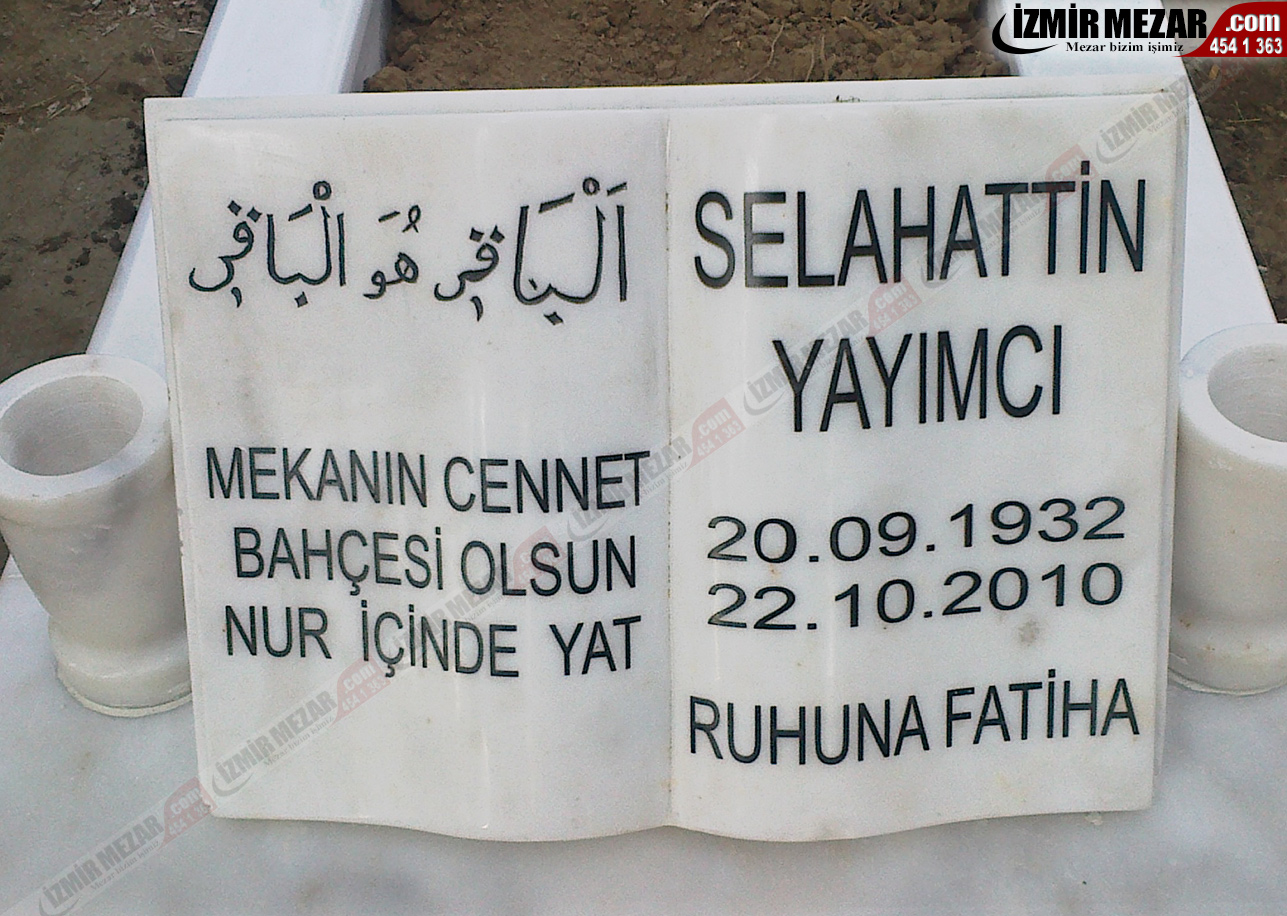 İZMİR MEZAR .com
Mezar bizim işimiz 454 1 363
اَلْبَاقِى هُوَ الْبَاقِى
MEKANIN CENNET
BAHÇESİ OLSUN
NUR İÇİNDE YAT
SELAHATTİN
YAYIMCI
20.09.1932
22.10.2010
RUHUNA FATİHA